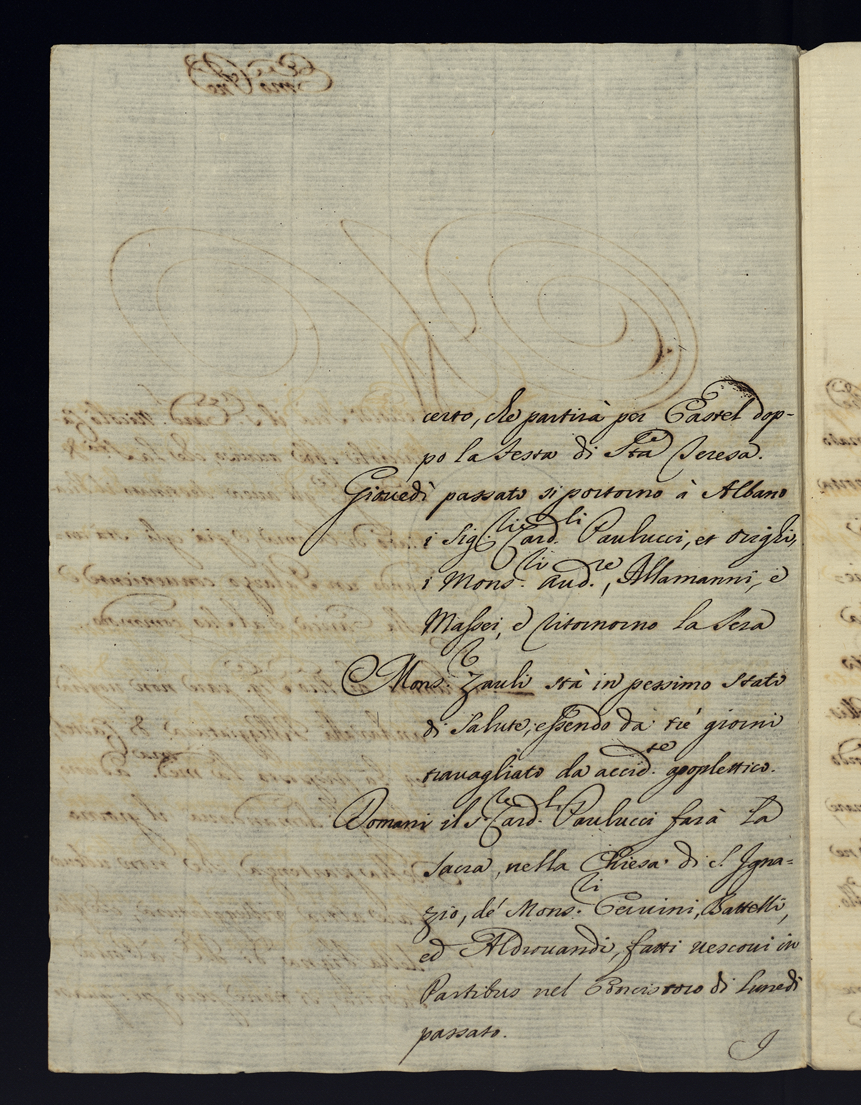 certo, che partirà per Castel dop-
po la festa di Sta Teresa.
Giovedì passato si portorno à Albano
i Sig.ri Card.li Paulucci, et Orighi,
i Mons.ri Aud.re, Allamanni, è
Massei, è ritornorno la sera
Mons.r Zauli stà in pessimo stato
di salute, essendo da trè giorni
travagliato da accid.te apoplettico.
Domani il S.r Card.l Paulucci farà la
sacra, nella Chiesa di S. Igna-
zio, de' Mons.ri Cervini, Battelli,
ed Aldrovandi, fatti vescovi in
Partibus nel Concistoro di Lunedì
passato.